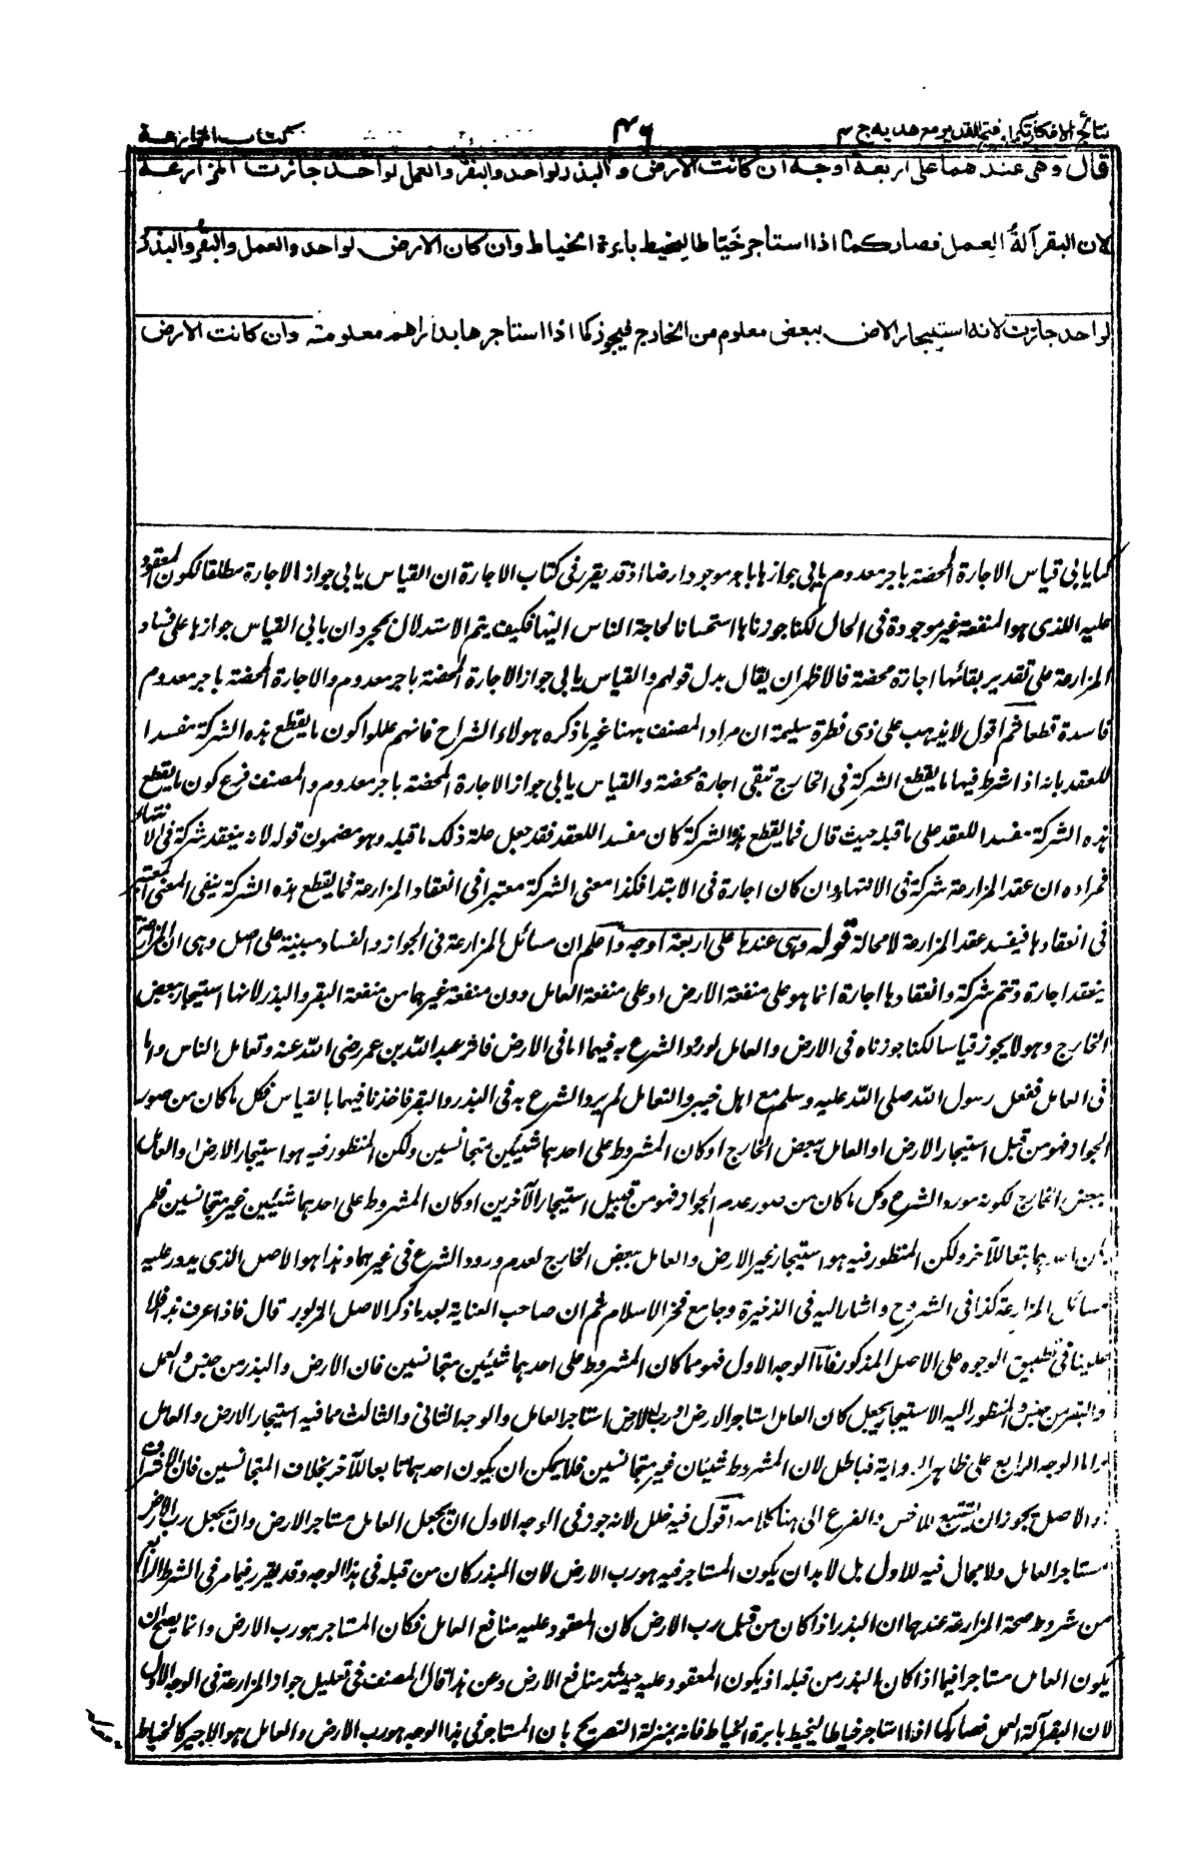 نتائج الافكار تكملة فتح القدير مع هداية ج ٤ ٤٦ كتاب المزارعة
قال وهى عندهما على اربعة اوجه ان كانت الارض والبذر لواحد والبقر والعمل لواحد جازت المزارعة
لان البقر آلة العمل فصار كما اذا استاجر خياطا ليخيط بابرة الخياط وان كان الارض لواحد والعمل والبقر والبذر
لواحد جازت لانه استيجار الارض ببعض معلوم من الخارج فيجوز كما اذا استاجرها بدراهم معلومة وان كانت الارض
كما يابى قياس الاجارة المحضة باجر معدوم يابى جوازها باجر موجود ارضا اذ قد يقرر فى كتاب الاجارة ان القياس يابى جواز الاجارة مطلقا لكون المعقود
عليه الذى هو المنفعة غير موجودة فى الحال لكنا جوزناها استحسانا لحاجة الناس اليها فكيف يتم الاستدلال بمجرد ان يابى القياس جوازها على فساد
المزارعة على تقدير بقائها اجارة محضة فالاظهر ان يقال بدل قولهم والقياس يابى جواز الاجارة المحضة باجر معدوم والاجارة المحضة باجر معدوم
فاسدة قطعا ثم اقول لا يذهب على ذى فطرة سليمة ان مراد المصنف ههنا غير ما ذكره هولاء الشراح فانهم عللوا كون ما يقطع هذه الشركة مفسدا
للعقد بانه اذا شرط فيها ما يقطع الشركة فى الخارج تبقى اجارة محضة والقياس يابى جواز الاجارة المحضة باجر معدوم والمصنف فرع كون ما يقطع
هذه الشركة مفسدا للعقد على ما قبله حيث قال فما يقطع هذه الشركة كان مفسدا للعقد فقد جعل علة ذلك ما قبله وهو مضمون قوله لانه ينعقد شركة فى الانتهاء
فمراده ان عقد المزارعة شركة فى الانتهاء وان كان اجارة فى الابتداء فكذا معنى الشركة معتبرا فى انعقاد المزارعة فما يقطع هذه الشركة ينفى المعنى المعتبر
فى انعقادها فيفسد عقد المزارعة لا محالة قوله وهى عندهما على اربعة اوجه واعلم ان مسائل المزارعة فى الجواز والفساد مبنية على اصل وهى ان المزارعة
ينعقد اجارة وتتم شركة وانعقادها اجارة انما هو على منفعة الارض او على منفعة العامل دون منفعة غيرهما من منفعة البقر والبذر لانها استيجار ببعض
الخارج وهو لا يجوز قياسا لكنا جوزناه فى الارض والعامل لورود الشرع به فيهما اما فى الارض فاثر عبد الله بن عمر رضى الله عنه وتعامل الناس واما
فى العامل ففعل رسول الله صلى الله عليه وسلم مع اهل خيبر والتعامل لم يرد الشرع به فى البذر والبقر فاخذنا فيهما بالقياس فكل ما كان من صور
الجواز فهو من قبيل استيجار الارض او العامل ببعض الخارج او كان المشروط على احدهما شيئين متجانسين ولكن المنظور فيه هو استيجار الارض والعامل
ببعض الخارج لكونه مورد الشرع وكل ما كان من صور عدم الجواز فهو من قبيل استيجار الآخرين او كان المشروط على احدهما شيئين غير متجانسين فلم
يكن احدهما تبعا للآخر ولكن المنظور فيه هو استيجار غير الارض والعامل ببعض الخارج لعدم ورود الشرع فى غيرهما وهذا هو الاصل الذى يدور عليه
مسائل المزارعة كذا فى الشروح واشار اليه فى الذخيرة وجامع فخر الاسلام ثم ان صاحب العناية بعد ما ذكر الاصل المزبور قال فاذا عرف هذا فلا
علينا فى تطبيق الوجوه على الاصل المذكور فاما الوجه الاول فهو مما كان المشروط على احدهما شيئين متجانسين فان الارض والبذر من جنس والعمل
والبقر من جنس والمنظور اليه الاستيجار يجعل كان العامل استاجر الارض او رب الارض استاجر العامل والوجه الثانى والثالث مما فيه استيجار الارض والعامل
واما الوجه الرابع على ظاهر الرواية فباطل لان المشروط شيئان غير متجانسين فلا يمكن ان يكون احدهما تابعا للآخر بخلاف المتجانسين فان الاشراف
او الاصل يجوز ان يستتبع الاخس والفرع الى هنا كلامه اقول فيه خلل لانه جوز فى الوجه الاول ان يجعل العامل مستاجر الارض وان يجعل رب الارض
مستاجر العامل ولا مجال فيه للاول بل لا بد ان يكون المستاجر فيه هو رب الارض لان البذر كان من قبله فى هذا الوجه وقد يقرر فيما مر فى الشرط الرابع
من شروط صحة المزارعة عندهما ان البذر اذا كان من قبل رب الارض كان المعقود عليه منافع العامل فكان المستاجر هو رب الارض وانما يصح ان
يكون العامل مستاجرا فيما اذا كان البذر من قبله اذ يكون المعقود عليه حينئذ منافع الارض وعن هذا قال المصنف فى تعليل جواز المزارعة فى الوجه الاول
لان البقر آلة العمل فصار كما اذا استاجر خياطا ليخيط بابرة الخياط فانه بمنزلة التصريح بان المستاجر فى هذا الوجه هو رب الارض والعامل هو الاجير كالخياط